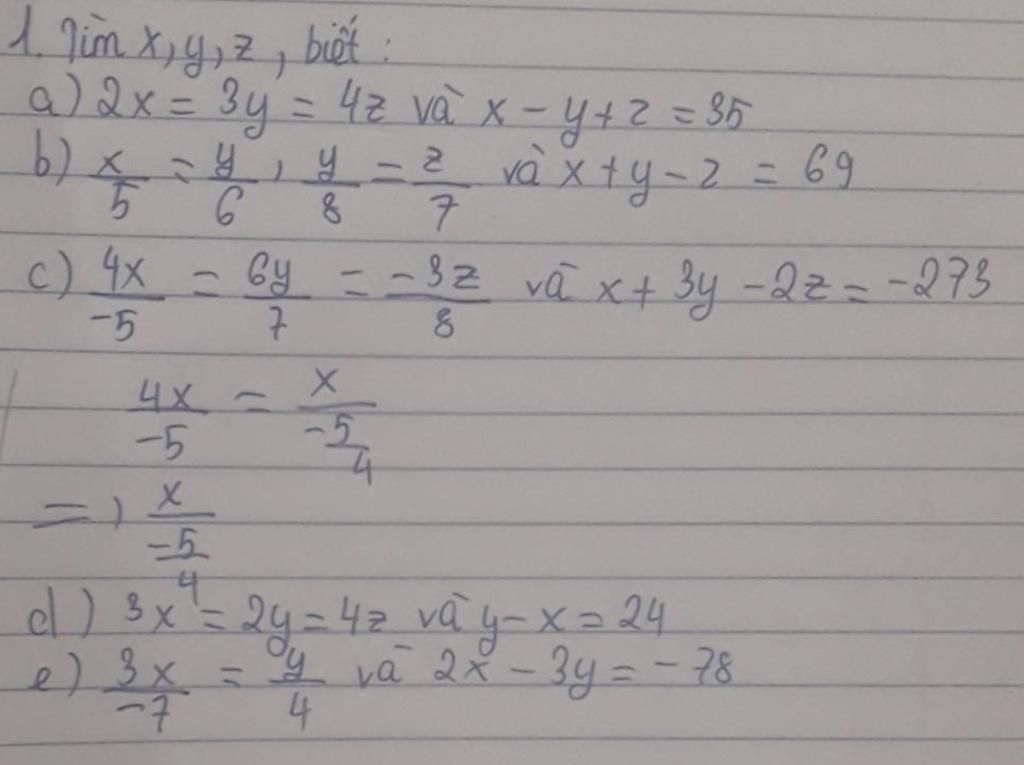 1. Tìm x, y, z, biết :
a) 2x = 3y = 4z và x - y + z = 35
b) x/5 = y/6 , y/8 = z/7 và x + y - z = 69
c) 4x/-5 = 6y/7 = -3z/8 và x + 3y - 2z = -273
4x/-5 = x/(-5/4)
=) x/(-5/4)
d) 3x = 2y = 4z và y - x = 24
e) 3x/-7 = y/4 và 2x - 3y = -78